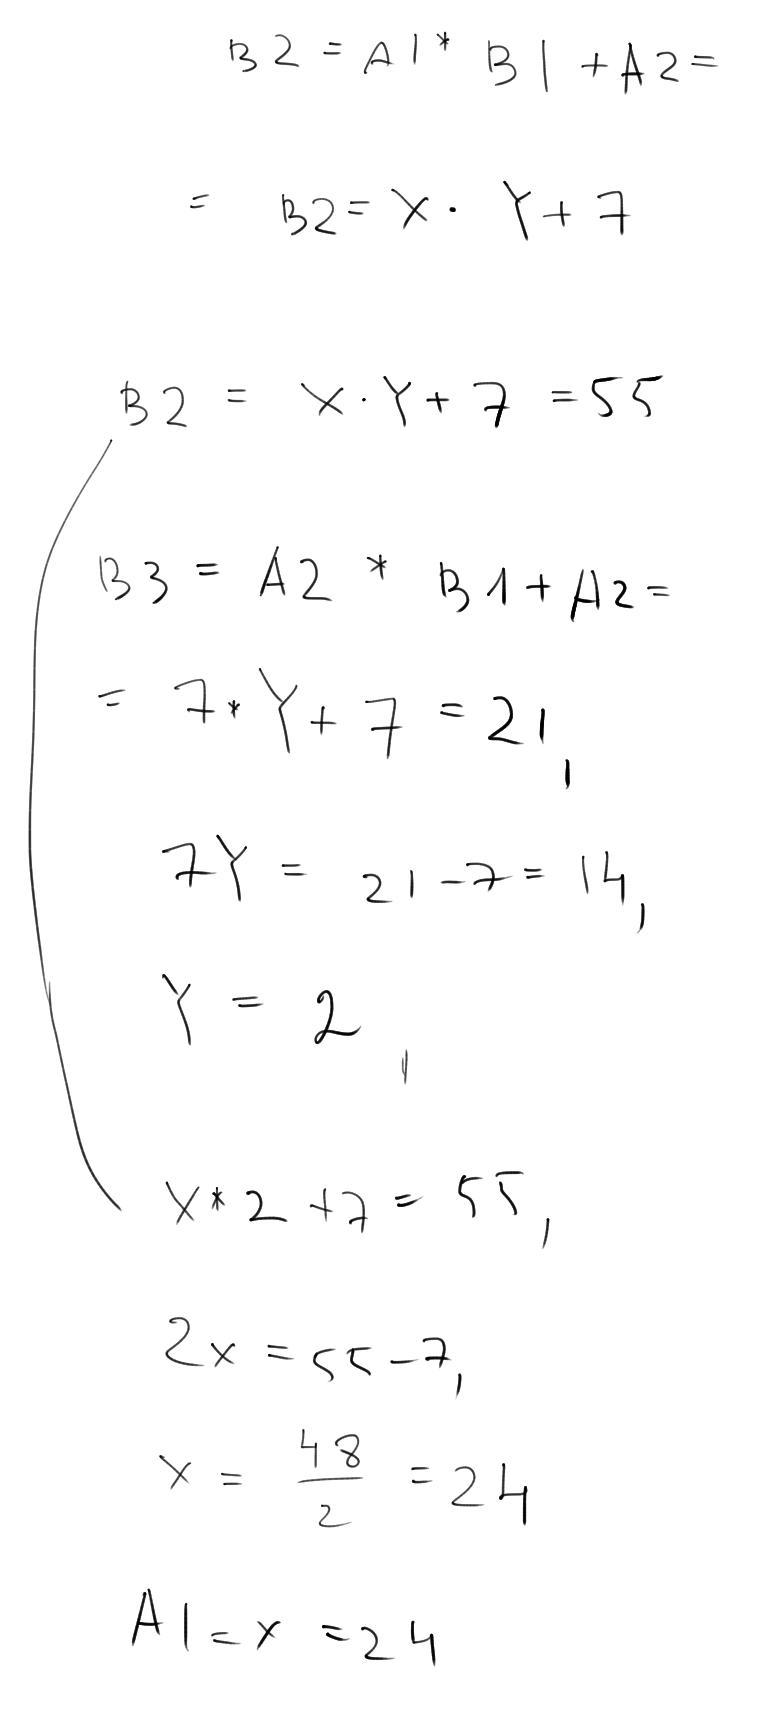 B2 = A1* B1 + A2 =
= B2 = X · Y + 7
B2 = X · Y + 7 = 55
B3 = A2 * B1 + A2 =
= 7 * Y + 7 = 21,
7Y = 21 - 7 = 14,
Y = 2,
X * 2 + 7 = 55,
2x = 55 - 7,
x = 48/2 = 24
A1 = x = 24